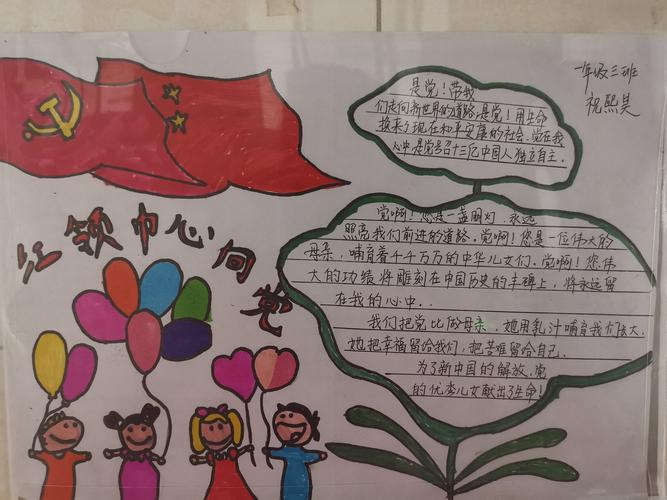 一年级三班
祝熙昊
红领巾心向党
是党！带我
们走向新世界的道路，是党！用生命
换来了现在和平安康的社会，党在我
心中是党号召十三亿中国人独立自主.
党啊！您是一盏明灯，永远
照亮我们前进的道路，党啊！您是一位伟大的
母亲，哺育着千千万万的中华儿女们.党啊！您伟
大的功绩将雕刻在中国历史的丰碑上，将永远留
在我的心中.
我们把党比做母亲，她用乳汁哺育我们长大.
她把幸福留给我们，把苦难留给自己.
为了新中国的解放，党
的优秀儿女献出了生命！